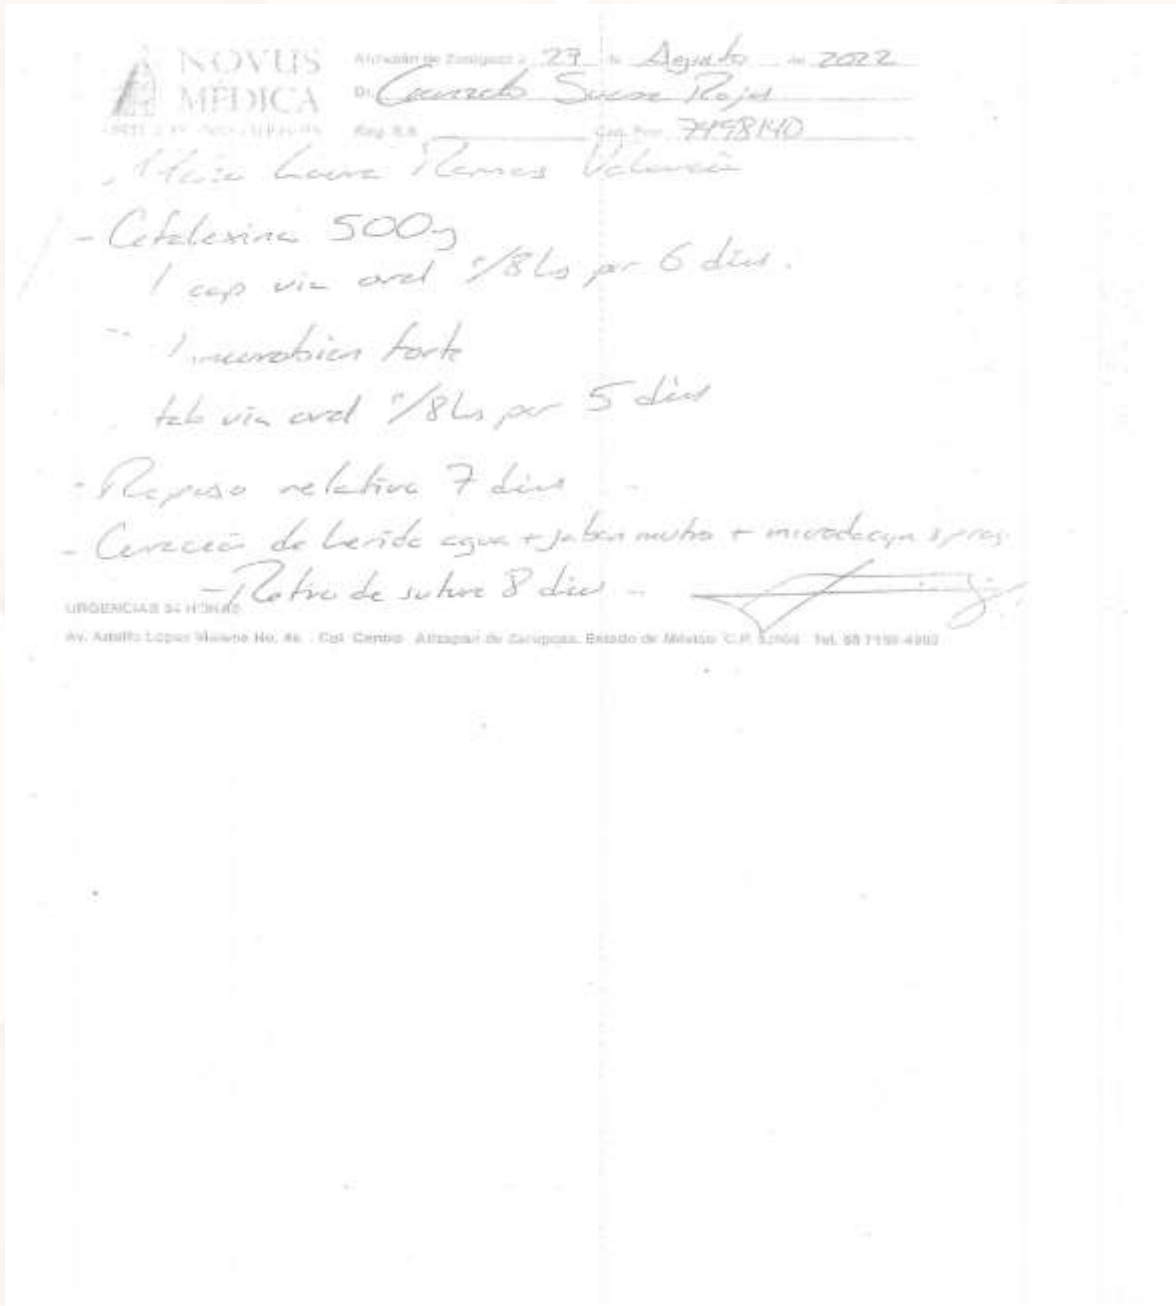 NOVUS
MÉDICA
Atizapán de Zaragoza a 27 de Agosto de 2022
Dr. Gerardo Rojas
Reg. S.S. Ced. Prof. 7498140
Laura Ramos Valencia
- Cefalexina 500g
1 cap via oral c/8hs por 6 dias.
forte
tab via oral c/8hs por 5 dias
- Reposo relativo 7 dias -
- Curación de herida agua + jabon neutro + microdacyn spray
- Retiro de sutura 8 dias -
URGENCIAS 24 HORAS
Av. Adolfo López Mateos No. Col. Centro Atizapán de Zaragoza, Estado de México C.P. Tel.